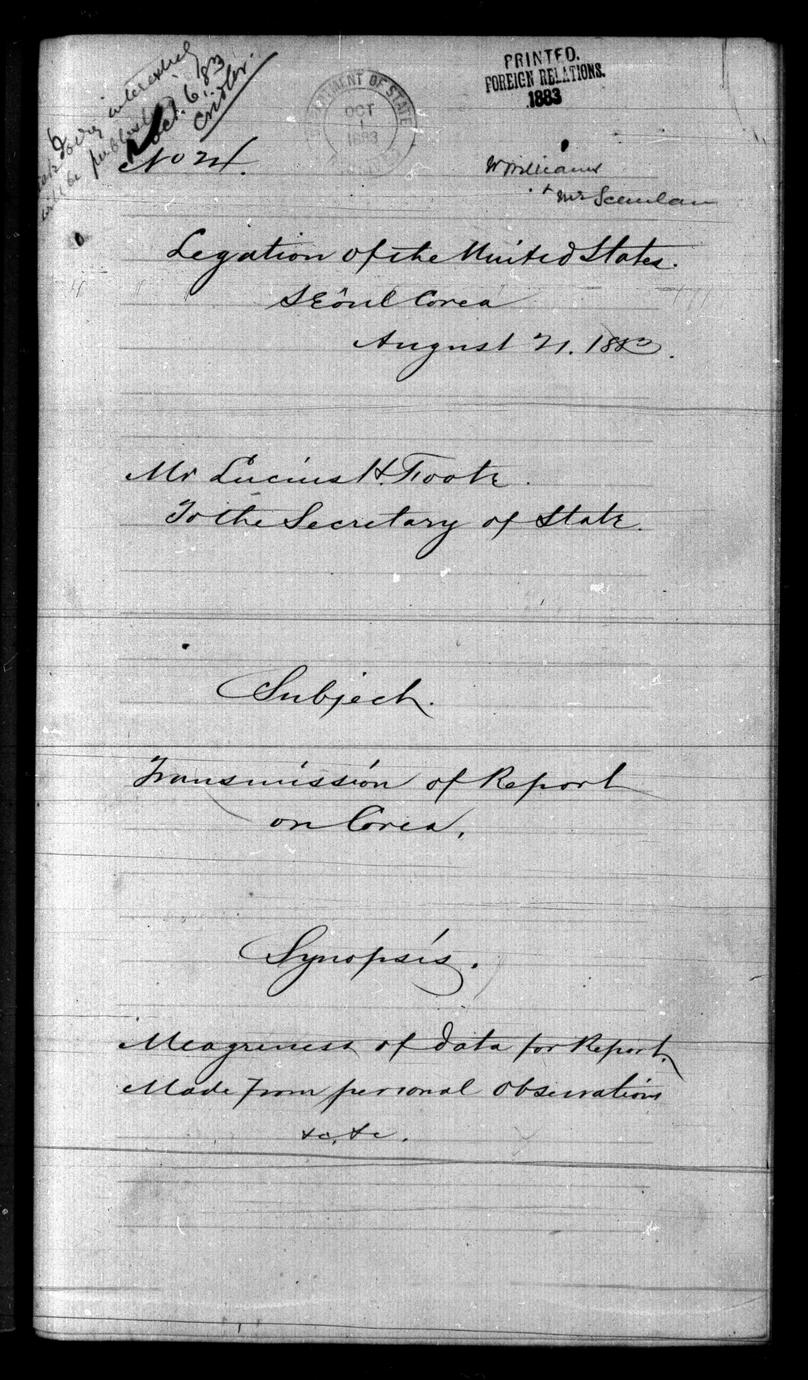 very interesting
will be published
Oct. 6. 83
Cridler.
DEPARTMENT OF STATE
OCT
1
1883
PRINTED.
FOREIGN RELATIONS.
1883
No 24.
W Williams
+ Mr Scanlan
Legation of the United States.
SEôul Corea
August 21. 1883.
Mr Lucius H. Foote.
To the Secretary of State.
Subject.
Transmission of Report
on Corea.
Synopsis.
Meagreness of data for Report.
Made from personal observations
&c, &c.